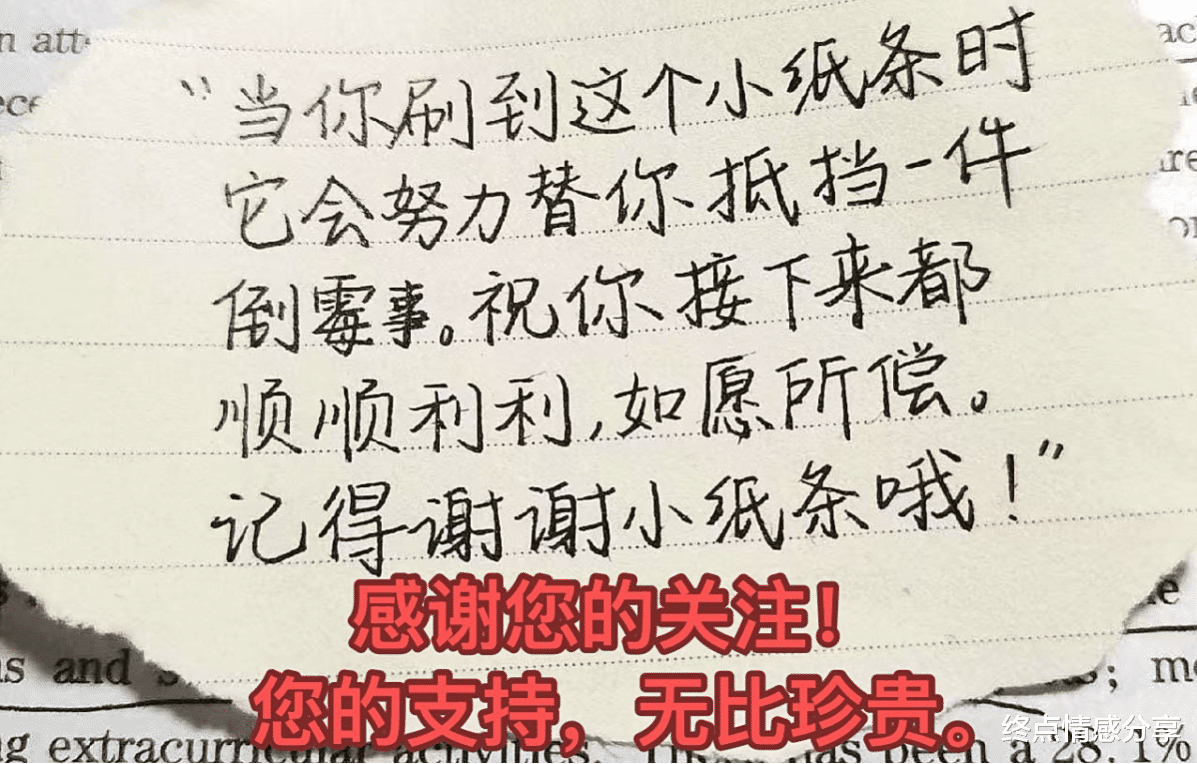 n att
ac
ece
"当你刷到这个小纸条时
它会努力替你抵挡一件
倒霉事。祝你接下来都
顺顺利利,如愿所偿。
记得谢谢小纸条哦!"
感谢您的关注!
ns and s
; mo
您的支持，无比珍贵。
终点情感分享
ng extracurricular activities.
has been a 28.1%